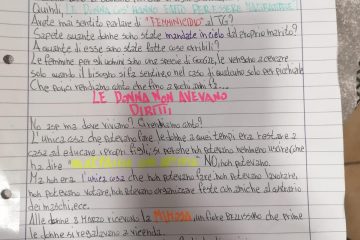 Quindi, LE DONNE COS'HANNO FATTO PER ESSERE MALTRATTATE?
Avete mai sentito parlare di "FEMMINICIDIO" al TG?
Sapete quante donne sono state mandate in cielo dal proprio marito?
A quante di esse sono state fatte cose orribili?
Le femmine per gli uomini sono una specie di , le vengono a cercare
solo quando il bisogno si fa sentire, nel caso di qualcuno solo per picchiarle
Che poi vi rendiamo conto che fino a pochi anni fa...
LE DONNA NON AVEVANO
DIRITTI
No ma dove viviamo? Ci rendiamo conto?
L'unica cosa che potevano fare le donne a quei tempi era restare a
casa ad educare i propri figli, si perché non potevano nemmeno uscire (che
ha dire " NO, non potevano.
Ma non era l'unica cosa che non potevano fare, non potevano lavorare,
non potevano votare, non potevano organizzare feste con amiche al contrario
dei maschi, ecc.
Alle donne 8 MARZO ricevono la MIMOSA, un fiore BELLISSIMO che prima
le donne si regalavano a vicenda.